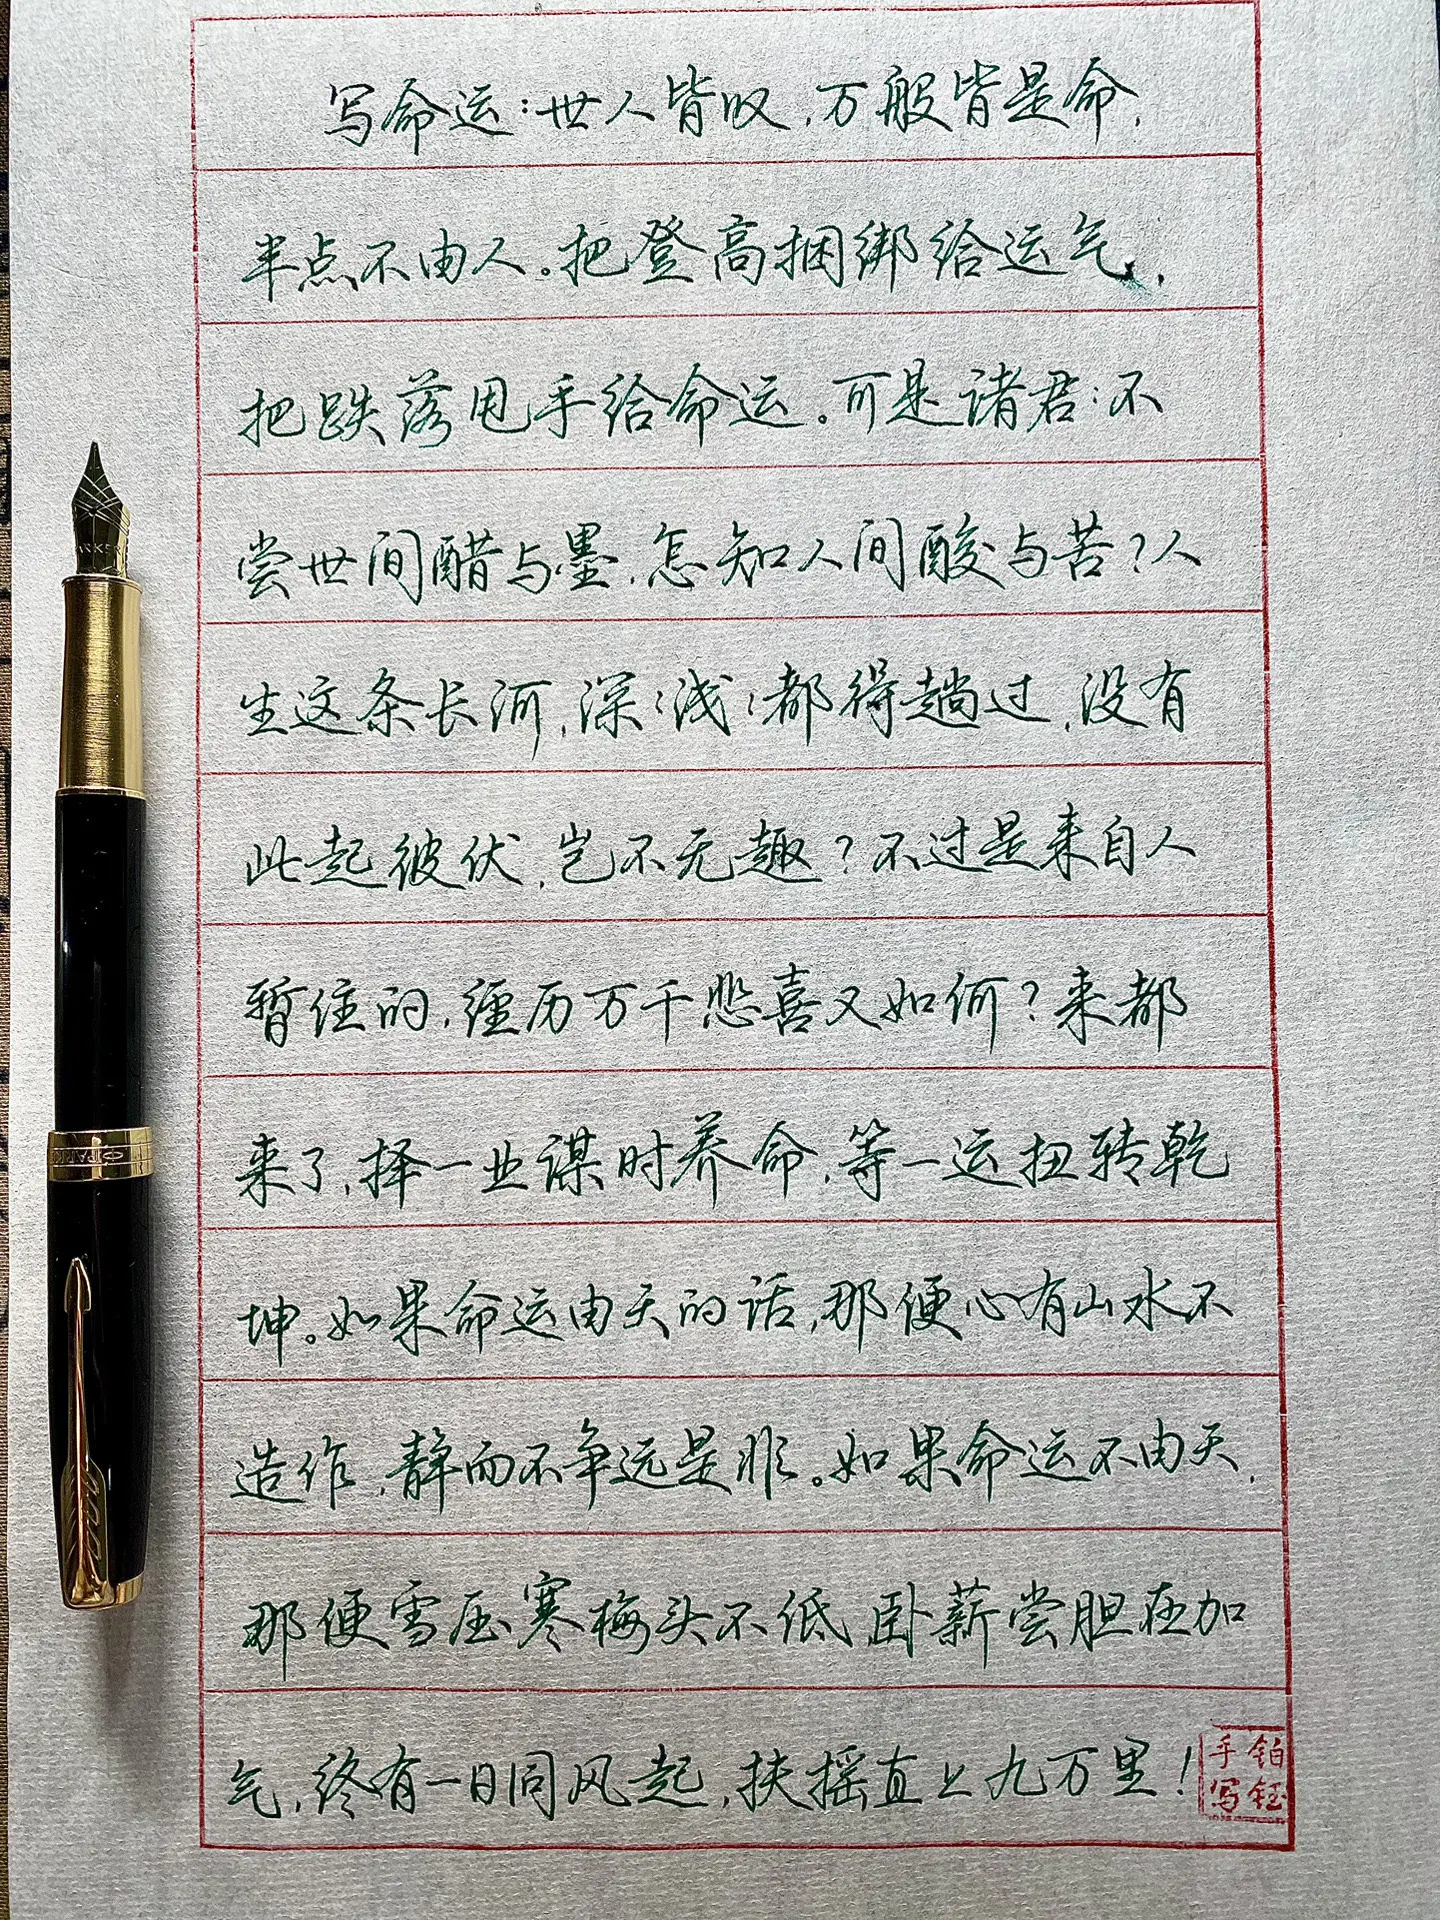 写命运：世人皆叹，万般皆是命，
半点不由人。把登高捆绑给运气，
把跌落甩手给命运。可是诸君：不
尝世间醋与墨，怎知人间酸与苦？人
生这条长河，深深浅浅都得趟过，没有
此起彼伏，岂不无趣？不过是来自人
暂住的，经历万千悲喜又如何？来都
来了，择一业谋时养命，等一运扭转乾
坤。如果命运由天的话，那便心有山水不
造作，静而不争远是非。如果命运不由天，
那便雪压寒梅头不低，卧薪尝胆在加
气，终有一日同风起，扶摇直上九万里！
铂钰
手写
PARKER